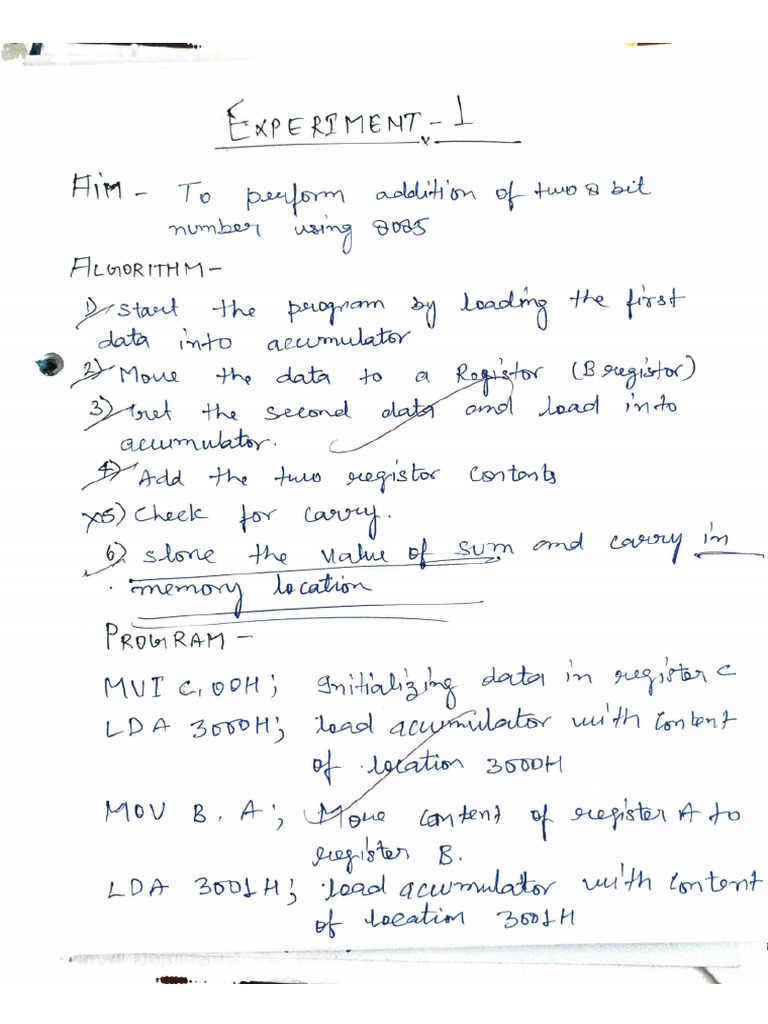 EXPERIMENT - 1
AIM - To perform addition of two 8 bit
number using 8085
ALGORITHM -
1) Start the program by loading the first
data into acumulator
2) Move the data to a Registor (B registor)
3) Get the second data and load into
acumulator.
4) Add the two registor contents
5) Check for carry.
6) Store the value of sum and carry in
memory location
PROGRAM -
MVI C, 00H; Initializing data in register C
LDA 3000H; load acumulator with content
of location 3000H
MOV B, A; Move content of register A to
register B.
LDA 3001H; load acumulator with content
of location 3001H